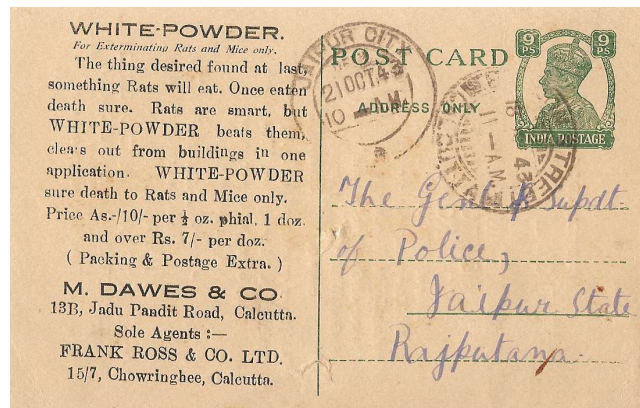 WHITE-POWDER.
For Exterminating Rats and Mice only.
The thing desired found at last,
something Rats will eat. Once eaten
death sure. Rats are smart, but
WHITE-POWDER beats them,
clears out from buildings in one
application. WHITE-POWDER
sure death to Rats and Mice only.
Price As.-/10/- per ½ oz. phial, 1 doz.
and over Rs. 7/- per doz.
( Packing & Postage Extra. )
M. DAWES & CO.
13B, Jadu Pandit Road, Calcutta.
Sole Agents :—
FRANK ROSS & CO. LTD.
15/7, Chowringhee, Calcutta.
POST CARD
ADDRESS ONLY
9 PS
9 PS
INDIA POSTAGE
JAIPUR CITY
21 OCT 43
10 A.M.
11 - A.M.
43
The Genl Supdt.
of Police,
Jaipur State
Rajputana.